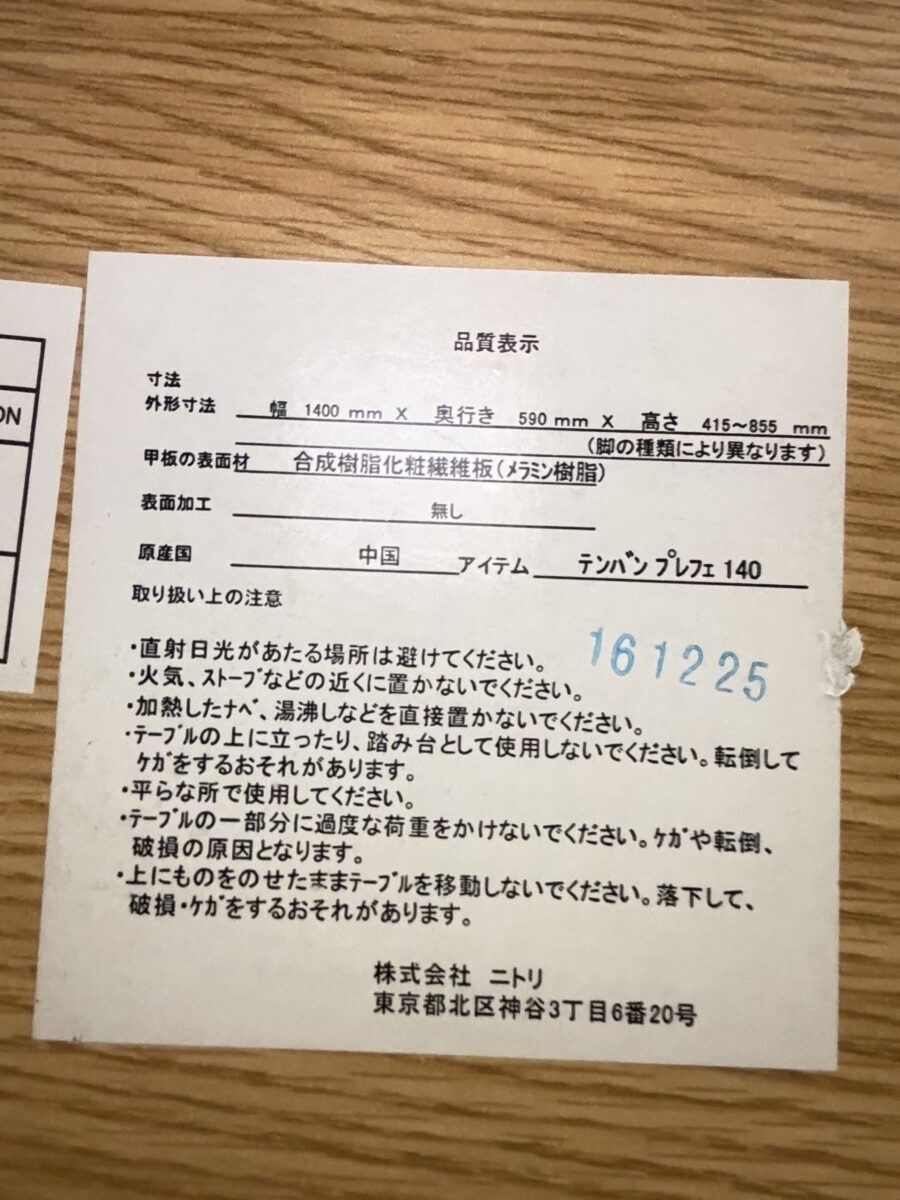 ON
品質表示
寸法
外形寸法 幅 1400 mm X 奥行き 590 mm X 高さ 415～855 mm
(脚の種類により異なります)
甲板の表面材 合成樹脂化粧繊維板(ﾒﾗﾐﾝ樹脂)
表面加工 無し
原産国 中国 アイテム テンバン プレフェ 140
取り扱い上の注意
161225
・直射日光があたる場所は避けてください。
・火気、ｽﾄｰﾌﾞなどの近くに置かないでください。
・加熱したﾅﾍﾞ、湯沸しなどを直接置かないでください。
・ﾃｰﾌﾞﾙの上に立ったり、踏み台として使用しないでください。転倒して
ｹｶﾞをするおそれがあります。
・平らな所で使用してください。
・ﾃｰﾌﾞﾙの一部分に過度な荷重をかけないでください。ｹｶﾞや転倒、
破損の原因となります。
・上にものをのせたままﾃｰﾌﾞﾙを移動しないでください。落下して、
破損・ｹｶﾞをするおそれがあります。
株式会社 ニトリ
東京都北区神谷3丁目6番20号